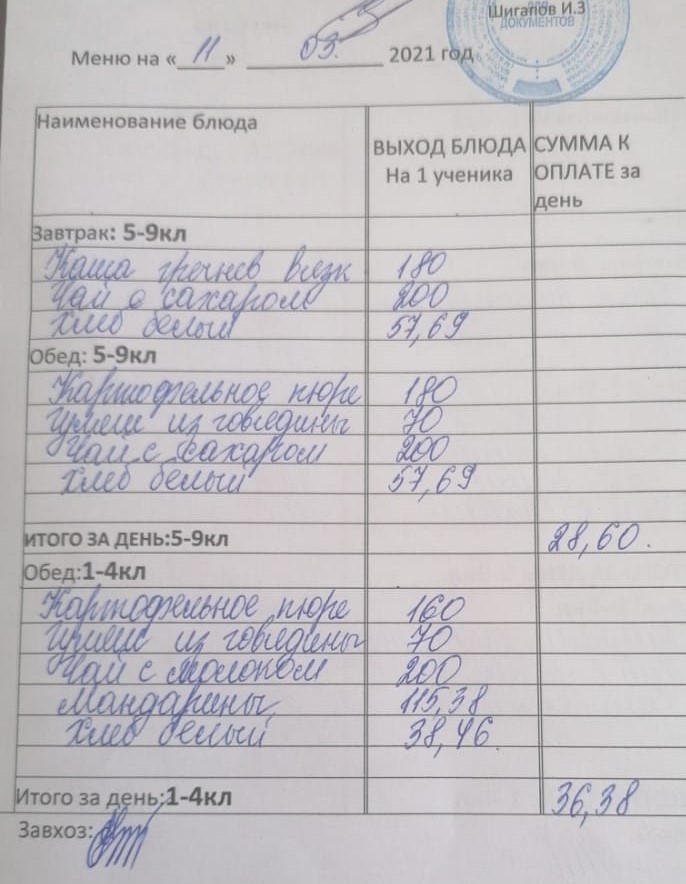 Шигапов И.З
ДЛЯ
ДОКУМЕНТОВ
Меню на « 11 » 03. 2021 год
Наименование блюда
ВЫХОД БЛЮДА На 1 ученика
СУММА К ОПЛАТЕ за день
Завтрак: 5-9кл
Каша гречнев вязк 180
Чай с сахаром 200
Хлеб белый 57,69
Обед: 5-9кл
Картофельное пюре 180
Гуляш из говядины 70
Чай с сахаром 200
Хлеб белый 57,69
ИТОГО ЗА ДЕНЬ:5-9кл 28,60.
Обед:1-4кл
Картофельное пюре 160
Гуляш из говядины 70
Чай с молоком 200
Мандарины 115,38
Хлеб белый 38,46
Итого за день:1-4кл 36,38
Завхоз: